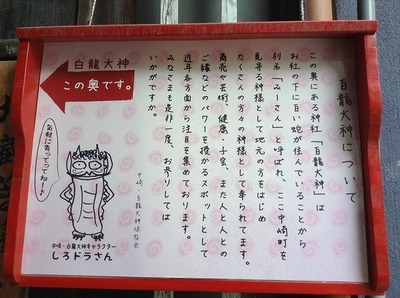 白龍大神について
この奥にある神社「白龍大神」は
お社の下に白い蛇が住んでいることから
別名「みーさん」と呼ばれ、ここ中崎町を
見守る神様として地元の方をはじめ
たくさんの方々の神様として奉られてます。
商売や芸術、健康、子宝、また人と人との
ご縁などのパワーを授かるスポットとして
近年各方面から注目を集めております。
みなさまも是非一度、お参りしては
いかがですか。
中崎・白龍大神保存会
白龍大神
この奥です。
気軽に寄ってってねー♪
中崎・白龍大神キャラクター
しろドラさん